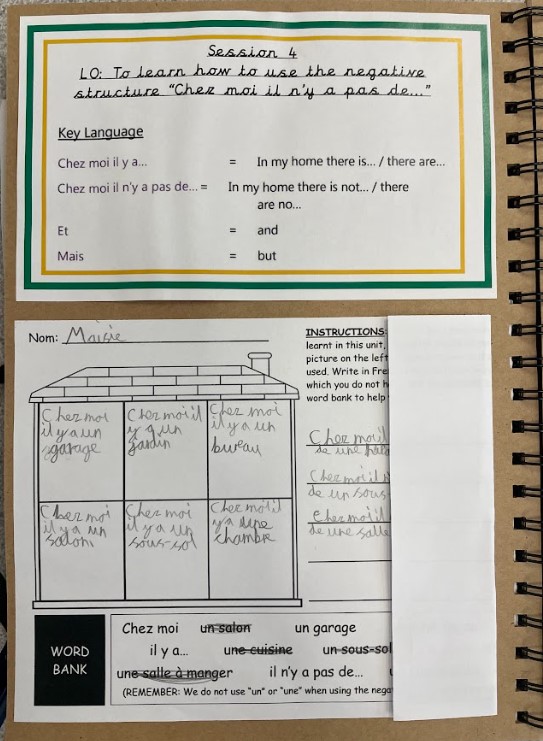 Session 4
LO: To learn how to use the negative
structure "Chez moi il n'y a pas de..."
Key Language
Chez moi il y a... = In my home there is... / there are...
Chez moi il n'y a pas de... = In my home there is not... / there
are no...
Et = and
Mais = but
Nom: Maisie
INSTRUCTIONS
learnt in this unit,
picture on the left
used. Write in Fre
which you do not h
word bank to help
Chez moi
il y a un
garage
Chez moi il
y a un
jardin
Chez moi
il y a un
bureau
Chez moi
il y a un
salom
Chez moi
il y a un
sous-sol
Chez moi il
y a une
chambre
Chez moi il
de une
Chez moi il
de un sous-
Chez moi il
de une salle
WORD
BANK
Chez moi un salon un garage
il y a... une cuisine un sous-sol
une salle à manger il n'y a pas de...
(REMEMBER: We do not use "un" or "une" when using the nega